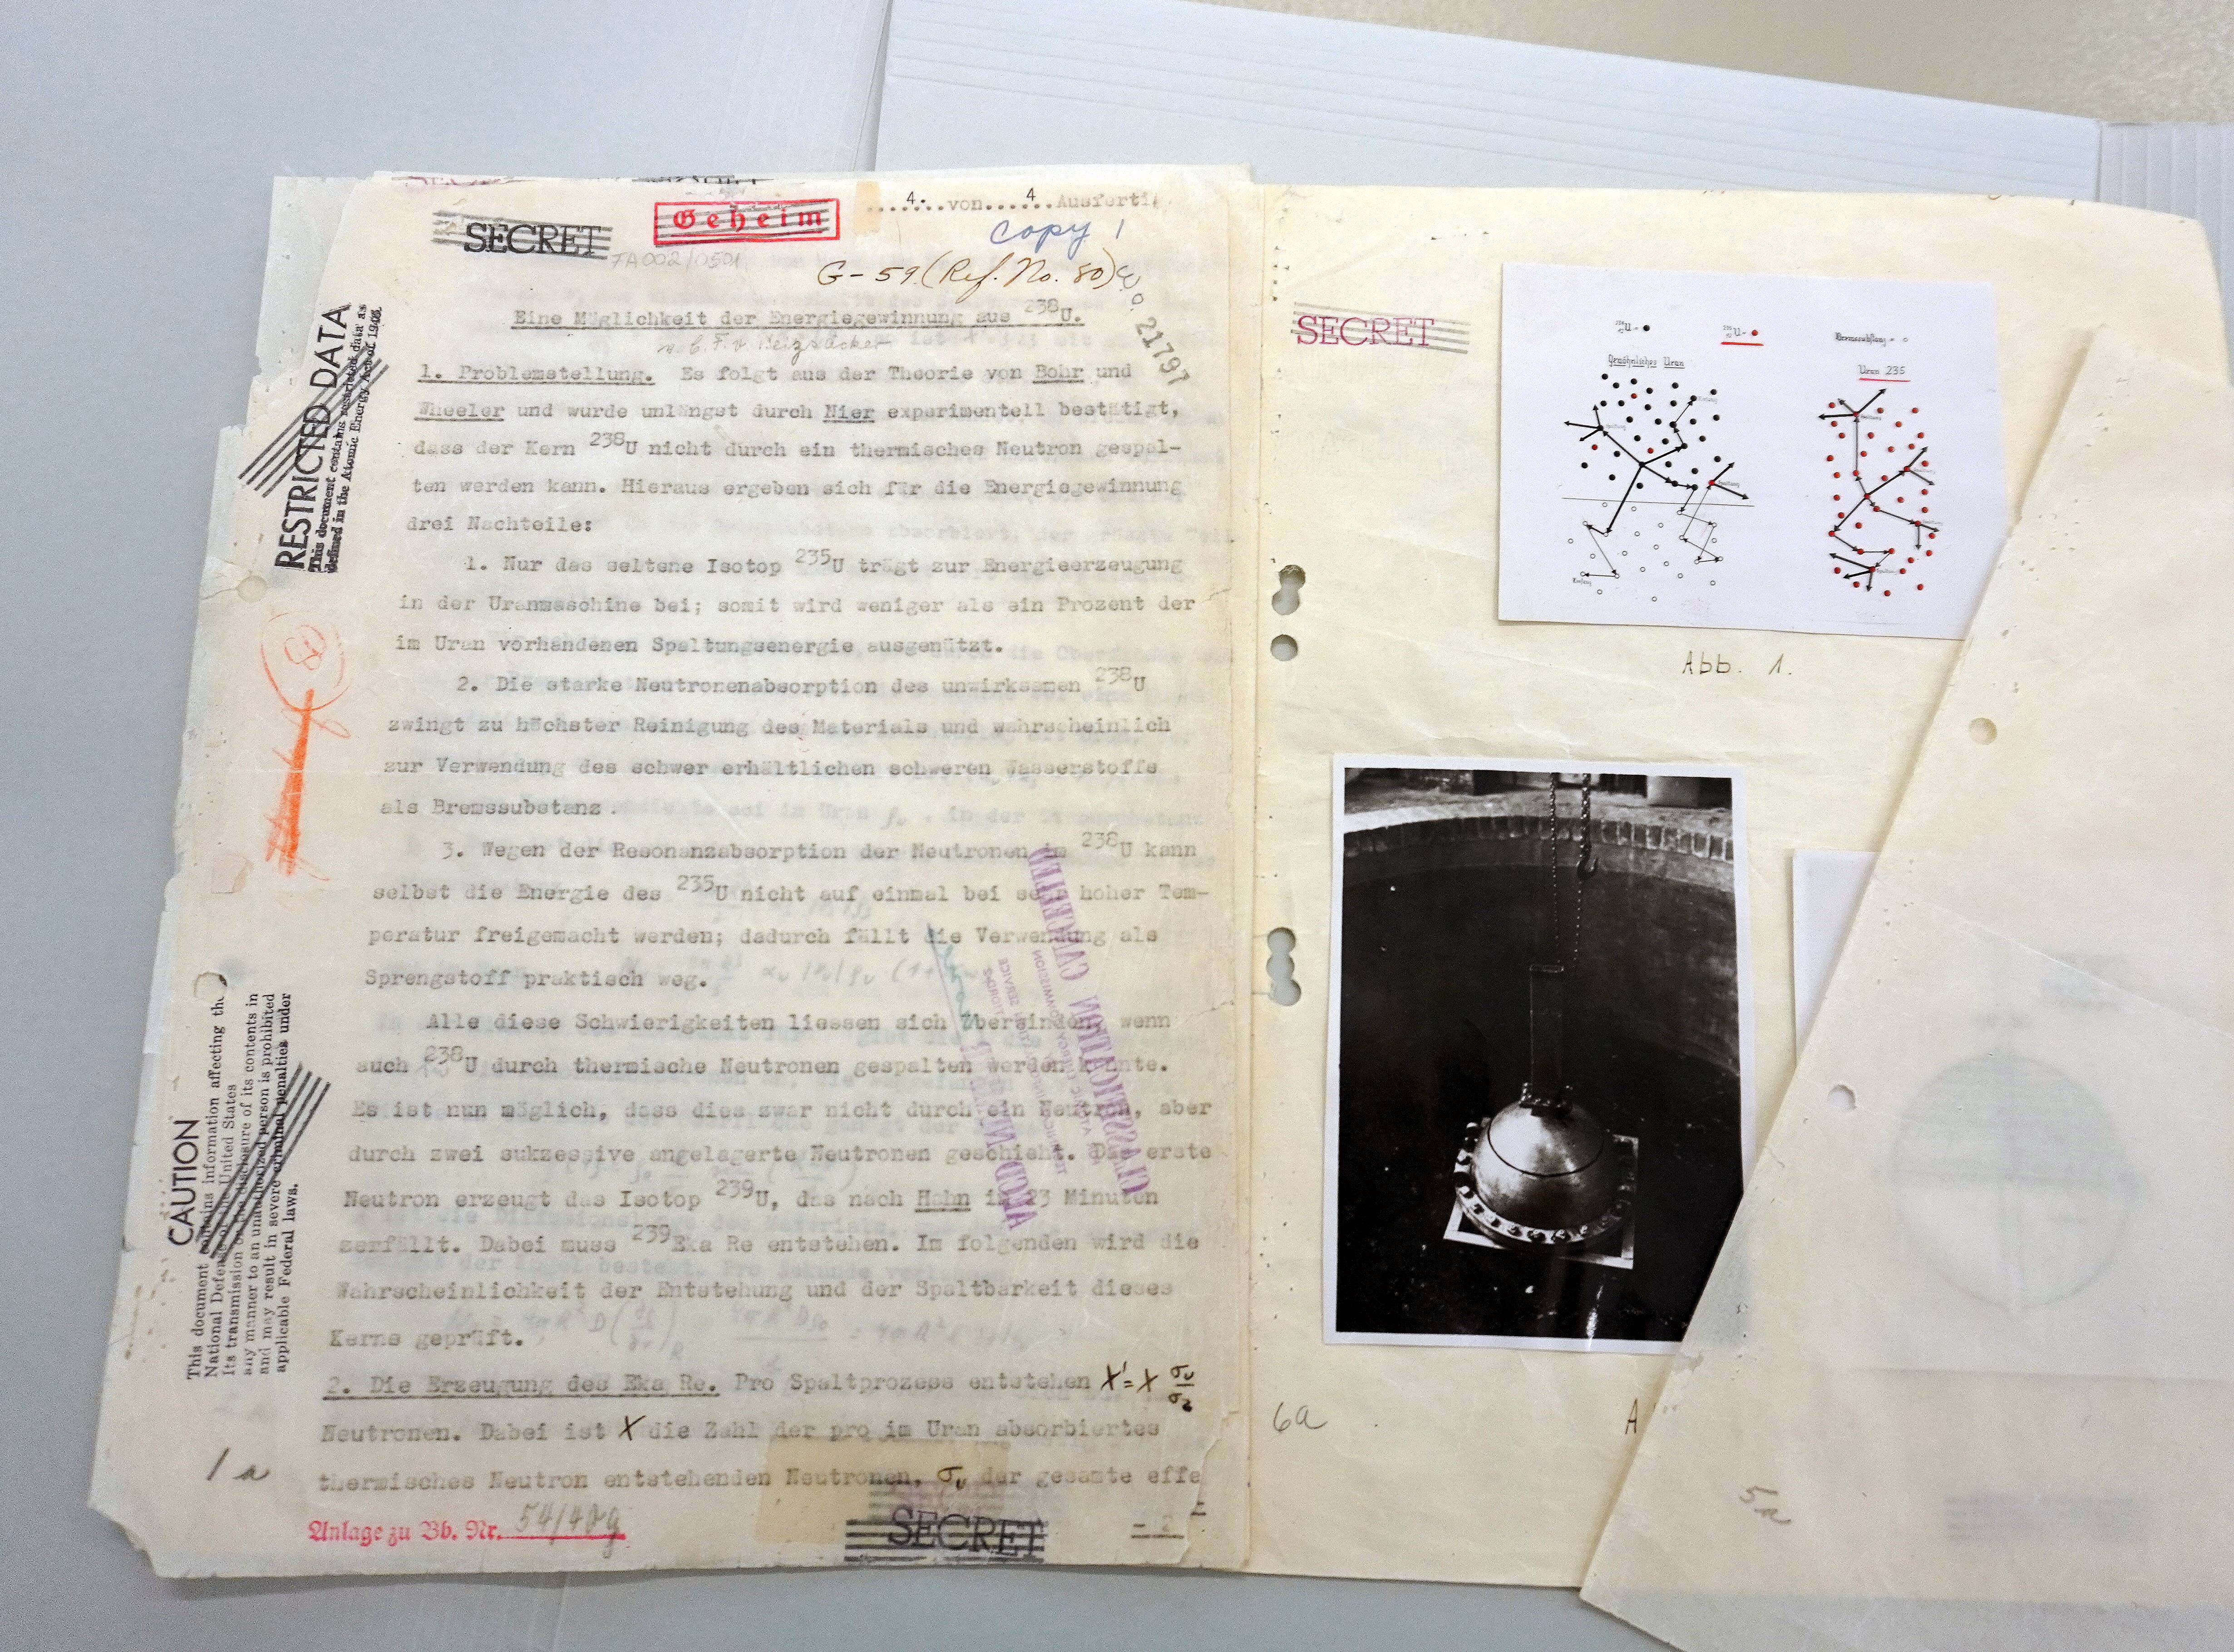 SECRET
Geheim
4. von 4 Ausferti
Copy 1
FA002/0501
G-59 (Ref. No. 80)
21797
Eine Möglichkeit der Energiegewinnung aus ²³⁸U.
1. Problemstellung. Es folgt aus der Theorie von Bohr und
Wheeler und wurde unlängst durch Nier experimentell bestätigt,
dass der Kern ²³⁸U nicht durch ein thermisches Neutron gespal-
ten werden kann. Hieraus ergeben sich für die Energiegewinnung
drei Nachteile:
1. Nur das seltene Isotop ²³⁵U trägt zur Energieerzeugung
in der Uranmaschine bei; somit wird weniger als ein Prozent der
im Uran vorhandenen Spaltungsenergie ausgenützt.
2. Die starke Neutronenabsorption des unwirksamen ²³⁸U
zwingt zu höchster Reinigung des Materials und wahrscheinlich
zur Verwendung des schwer erhältlichen schweren Wasserstoffs
als Bremssubstanz.
3. Wegen der Resonanzabsorption der Neutronen im ²³⁸U kann
selbst die Energie des ²³⁵U nicht auf einmal bei sehr hoher Tem-
peratur freigemacht werden; dadurch fällt die Verwendung als
Sprengstoff praktisch weg.
Alle diese Schwierigkeiten liessen sich überwinden, wenn
auch ²³⁸U durch thermische Neutronen gespalten werden könnte.
Es ist nun möglich, dass dies zwar nicht durch ein Neutron, aber
durch zwei sukzessive angelagerte Neutronen geschieht. Das erste
Neutron erzeugt das Isotop ²³⁹U, das nach Hahn in 23 Minuten
zerfällt. Dabei muss ²³⁹Eka Re entstehen. Im folgenden wird die
Wahrscheinlichkeit der Entstehung und der Spaltbarkeit dieses
Kerns geprüft.
2. Die Erzeugung des Eka Re. Pro Spaltprozess entstehen X'=X
Neutronen. Dabei ist X die Zahl der pro im Uran absorbiertes
thermisches Neutron entstehenden Neutronen, σᵤ der gesamte effe
- 2 -
Anlage zu Bb. Nr. 54/40g
SECRET
1a
RESTRICTED DATA
This document contains restricted data as
defined in the Atomic Energy Act of 1946.
CAUTION
This document contains information affecting the
National Defense of the United States
Its transmission or the disclosure of its contents in
any manner to an unauthorized person is prohibited
and may result in severe criminal penalties under
applicable Federal laws.
CLASSIFICATION CANCELLED
SECRET
Gewöhnliches Uran
Bremssubstanz
Uran 235
Abb. 1.
6a
A
5a